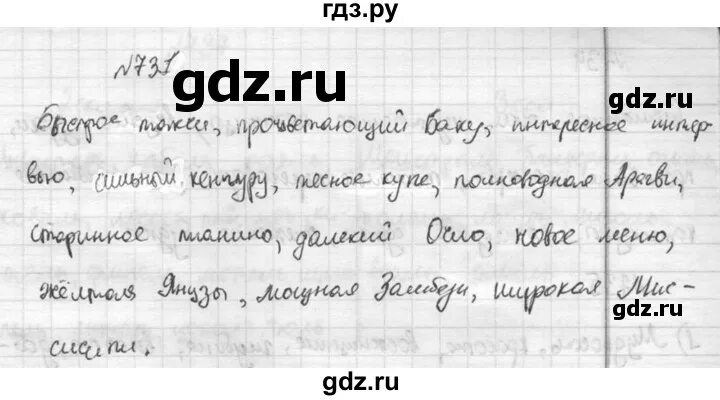 гдз.ру
№731
gdz.ru
gdz.ru
Быстрое такси, процветающий Баку, интересное интер-
вью, сильный кенгуру, тесное купе, полноводная Арагви,
старинное пианино, далекий Осло, новое меню,
gdz.ru
gdz.ru
жёлтая Янцзы, мощная Замбези, широкая Мис-
сисипи.
gdz.ru